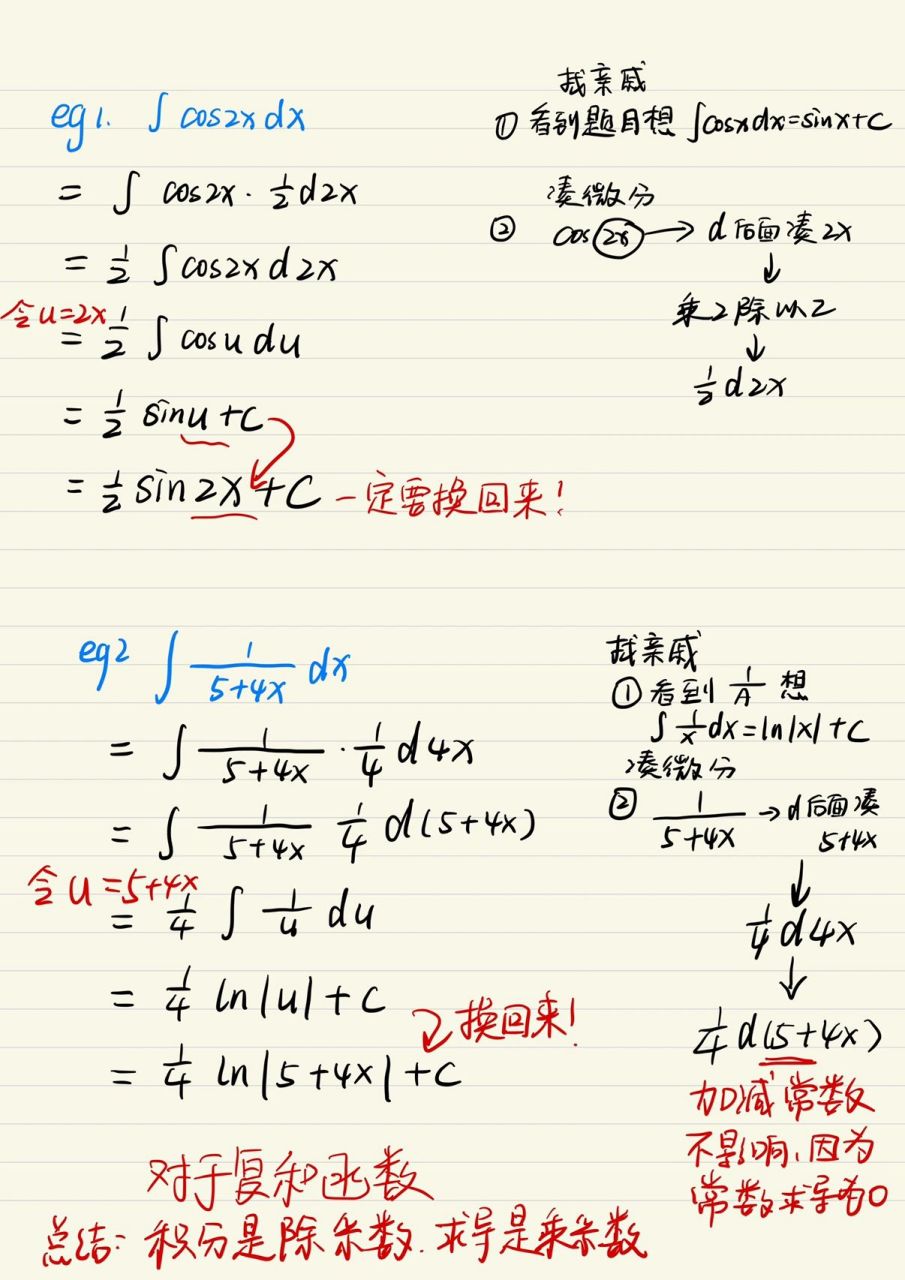 eg1. ∫ cos2x dx
= ∫ cos2x · 1/2 d2x
= 1/2 ∫ cos2x d2x
令u=2x
= 1/2 ∫ cosu du
= 1/2 sinu + C
= 1/2 sin2x + C 一定要换回来!
找亲戚
① 看到题目想 ∫cosxdx=sinx+C
凑微分
② cos 2x → d后面凑2x
↓
乘2除以2
↓
1/2 d2x
eg2 ∫ 1/(5+4x) dx
= ∫ 1/(5+4x) · 1/4 d4x
= ∫ 1/(5+4x) 1/4 d(5+4x)
令u=5+4x
= 1/4 ∫ 1/u du
= 1/4 ln|u| + C
换回来!
= 1/4 ln|5+4x| + C
找亲戚
① 看到 1/A 想
∫ 1/x dx = ln|x| + C
凑微分
② 1/(5+4x) → d后面凑
5+4x
↓
1/4 d4x
↓
1/4 d(5+4x)
加减常数
不影响,因为
常数求导为0
对于复和函数
总结: 积分是除系数.求导是乘系数